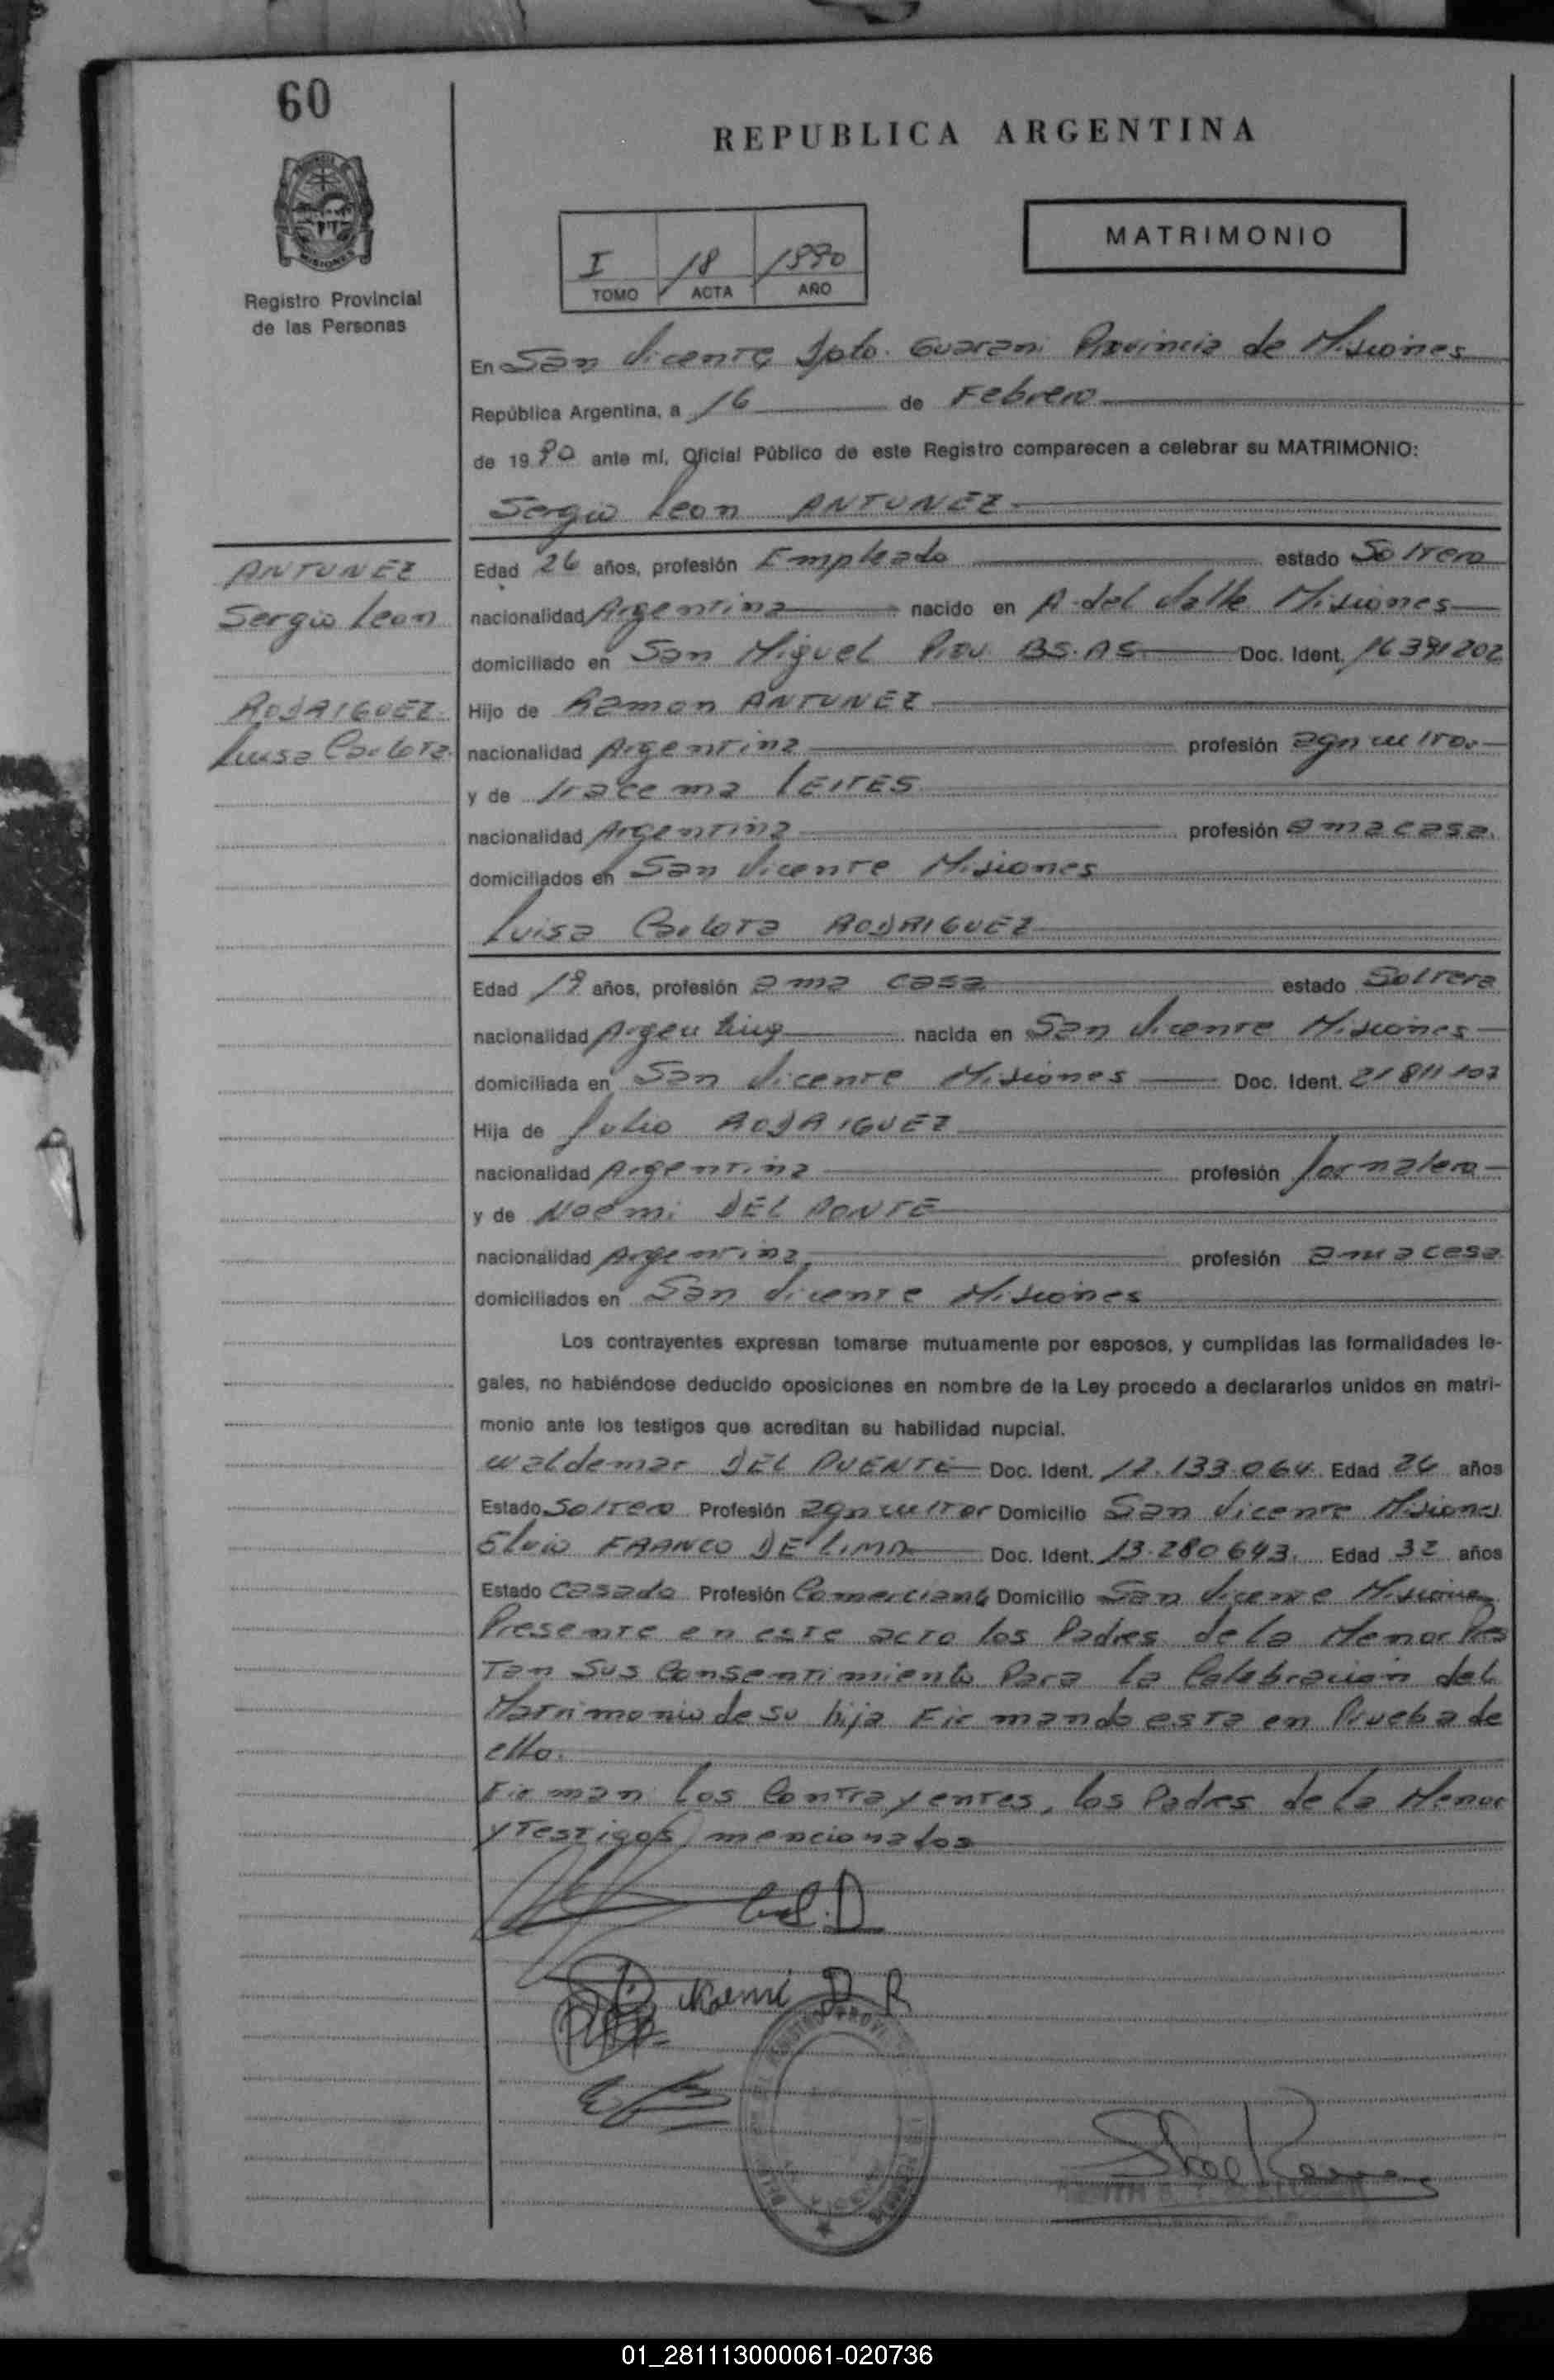 60
REPUBLICA ARGENTINA
MISIONES
Registro Provincial
de las Personas
I 18 1990
TOMO ACTA AÑO
MATRIMONIO
En San Vicente Dpto. Guarani Provincia de Misiones
República Argentina, a 16 de Febrero
de 1990 ante mí, Oficial Público de este Registro comparecen a celebrar su MATRIMONIO:
Sergio Leon ANTUNEZ
ANTUNEZ
Sergio Leon
RODRIGUEZ
Luisa Carlota
Edad 26 años, profesión Empleado estado Soltero
nacionalidad Argentina nacido en A. del Valle Misiones
domiciliado en San Miguel Prov. BS.AS Doc. Ident. 16391202
Hijo de Ramon ANTUNEZ
nacionalidad Argentina profesión agricultor
y de Iracema LEITES
nacionalidad Argentina profesión ama casa
domiciliados en San Vicente Misiones
Luisa Carlota RODRIGUEZ
Edad 19 años, profesión ama casa estado Soltera
nacionalidad Argentina nacida en San Vicente Misiones
domiciliada en San Vicente Misiones Doc. Ident. 21811107
Hija de Julio RODRIGUEZ
nacionalidad Argentina profesión Jornalero
y de Noemi DEL PONTE
nacionalidad Argentina profesión ama casa
domiciliados en San Vicente Misiones
Los contrayentes expresan tomarse mutuamente por esposos, y cumplidas las formalidades le-
gales, no habiéndose deducido oposiciones en nombre de la Ley procedo a declararlos unidos en matri-
monio ante los testigos que acreditan su habilidad nupcial.
Waldemar DEL PUENTE Doc. Ident. 17.133.064 Edad 26 años
Estado Soltero Profesión agricultor Domicilio San Vicente Misiones
Elvio FRANCO DE LIMA Doc. Ident. 13.280643. Edad 32 años
Estado Casado Profesión Comerciante Domicilio San Vicente Misiones
Presente en este acto los Padres de la Menor Pres
Tan Sus Consentimiento Para la Celebracion del
Matrimonio de su hija Firmando esta en Prueba de
ello.
Firman los Contrayentes, los Padres de la Menor
y Testigos mencionados
Noemi D R
01_281113000061-020736